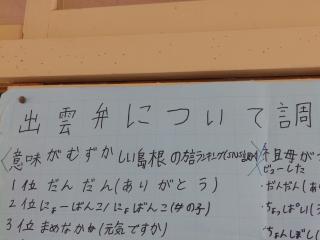 出雲弁について調
〈意味がむずかしい島根の方言ランキング(SNS調べ)
1位 だんだん(ありがとう)
2位 にょーばんこ/にょばんこ(女の子)
3位 まめなかね(元気ですか)
祖母が
ビューした
・だんだん(あり
・ちょっぱい(
・ちょんぼし(